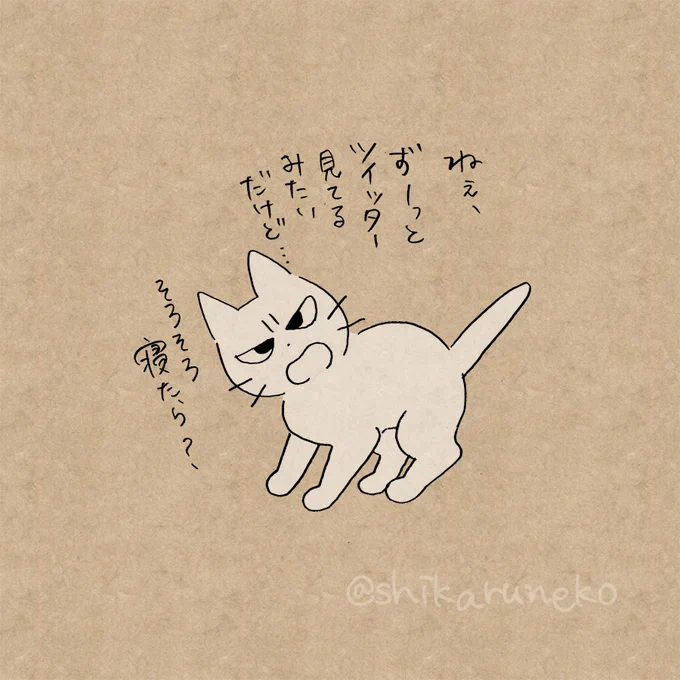 ねぇ、
ずーっと
ツイッター
見てる
みたい
だけど…
そろそろ
寝たら?、
@shikaruneko